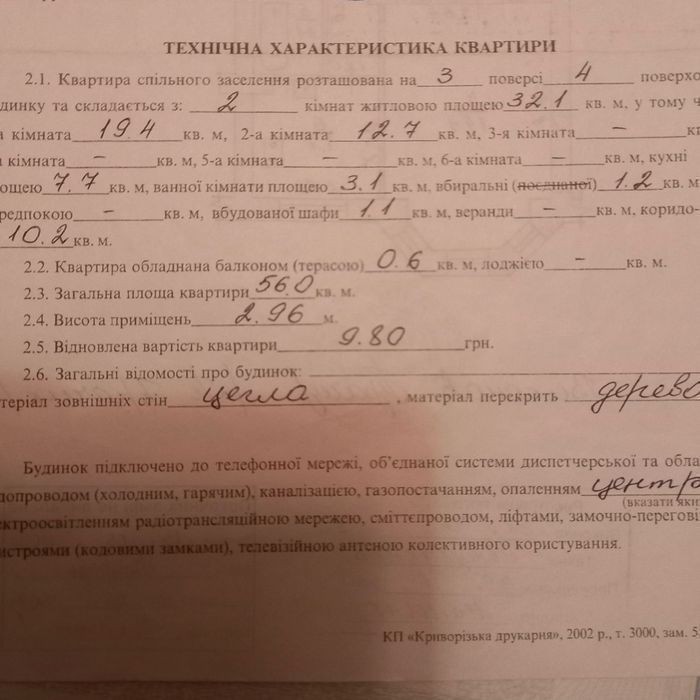 ТЕХНІЧНА ХАРАКТЕРИСТИКА КВАРТИРИ
2.1. Квартира спільного заселення розташована на 3 поверсі 4 поверхо
динку та складається з: 2 кімнат житловою площею 32.1 кв. м, у тому ч
а кімната 19.4 кв. м, 2-а кімната 12.7 кв. м, 3-я кімната – кв
а кімната – кв. м, 5-а кімната – кв. м, 6-а кімната – кв. м, кухні
ощею 7.7 кв. м, ванної кімнати площею 3.1 кв. м, вбиральні (поєднаної) 1.2 кв. м
редпокою – кв. м, вбудованої шафи 1.1 кв. м, веранди – кв. м, коридо-
10.2 кв. м.
2.2. Квартира обладнана балконом (терасою) 0.6 кв. м, лоджією – кв. м.
2.3. Загальна площа квартири 56.0 кв. м.
2.4. Висота приміщень 2.96 м.
2.5. Відновлена вартість квартири 9.80 грн.
2.6. Загальні відомості про будинок:
теріал зовнішніх стін цегла , матеріал перекрить дерево
Будинок підключено до телефонної мережі, об'єднаної системи диспетчерської та обла
допроводом (холодним, гарячим), каналізацією, газопостачанням, опаленням центра
(вказати яки
ектроосвітленням радіотрансляційною мережею, сміттєпроводом, ліфтами, замочно-перегові
истроями (кодовими замками), телевізійною антеною колективного користування.
КП «Криворізька друкарня», 2002 р., т. 3000, зам. 5